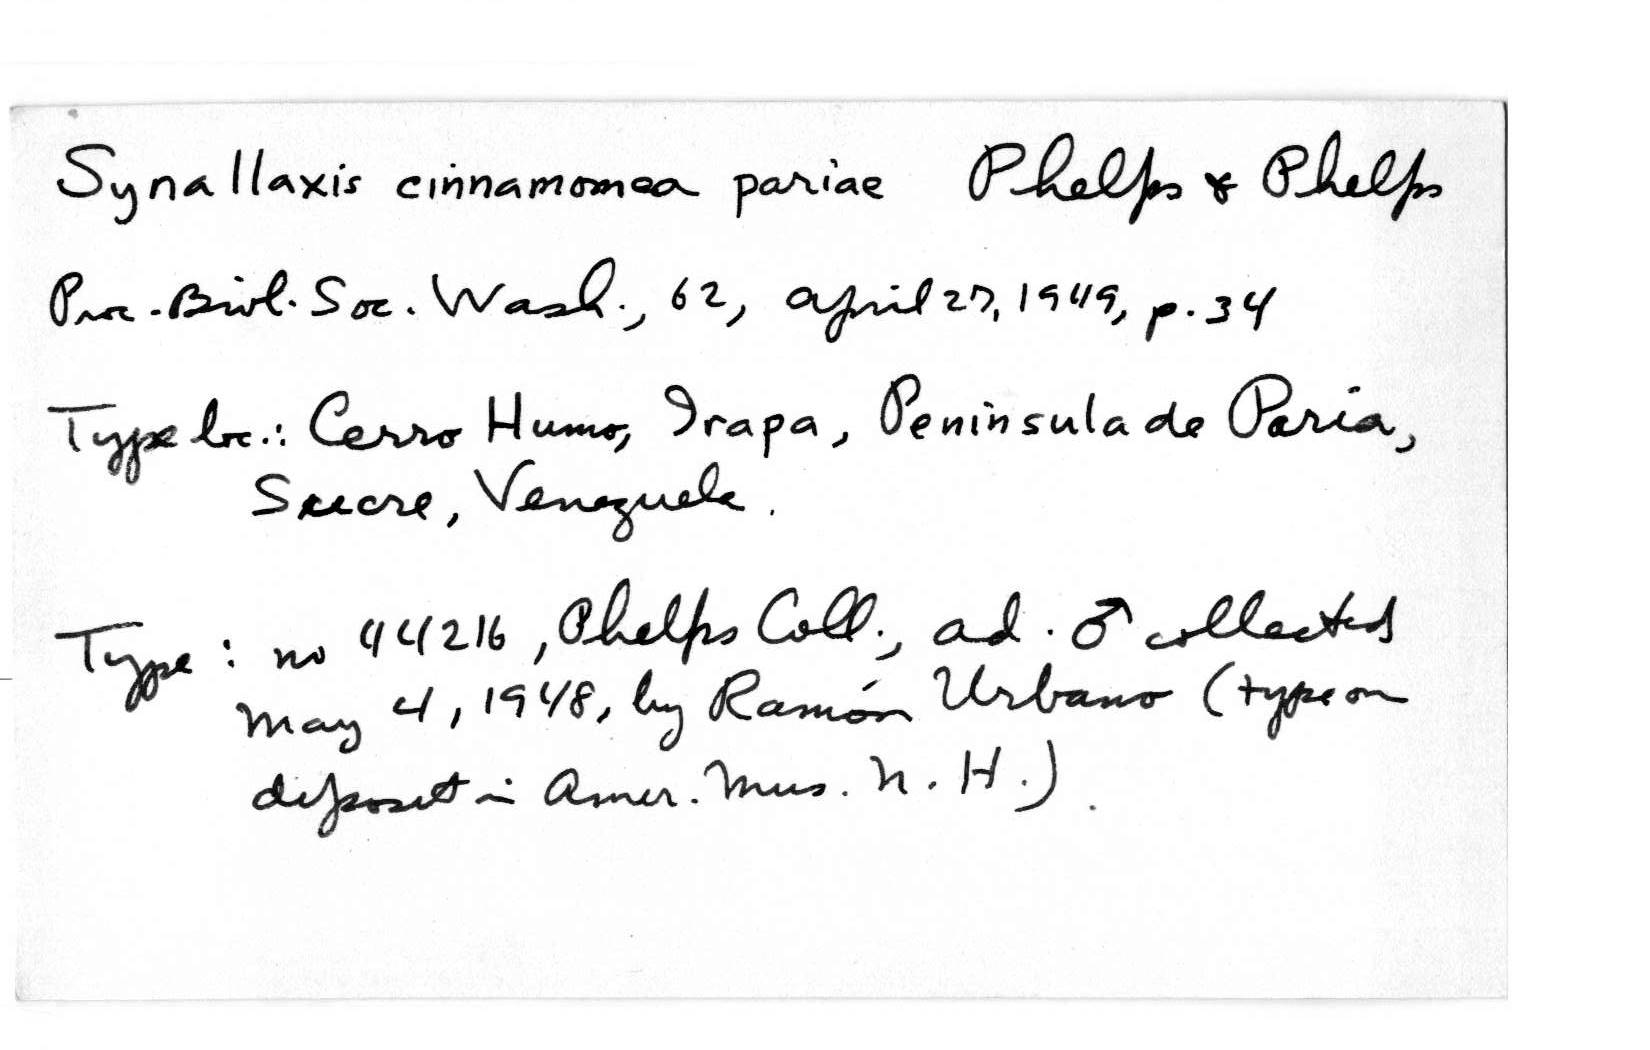 Synallaxis cinnamomea pariae Phelps & Phelps
Proc. Biol. Soc. Wash., 62, April 27, 1949, p. 34
Type loc.: Cerro Humo, Irapa, Peninsula de Paria,
Sucre, Venezuela.
Type: no 44216, Phelps Coll., ad. ♂ collected
May 4, 1948, by Ramón Urbano (type on
deposit in Amer. Mus. N. H.).